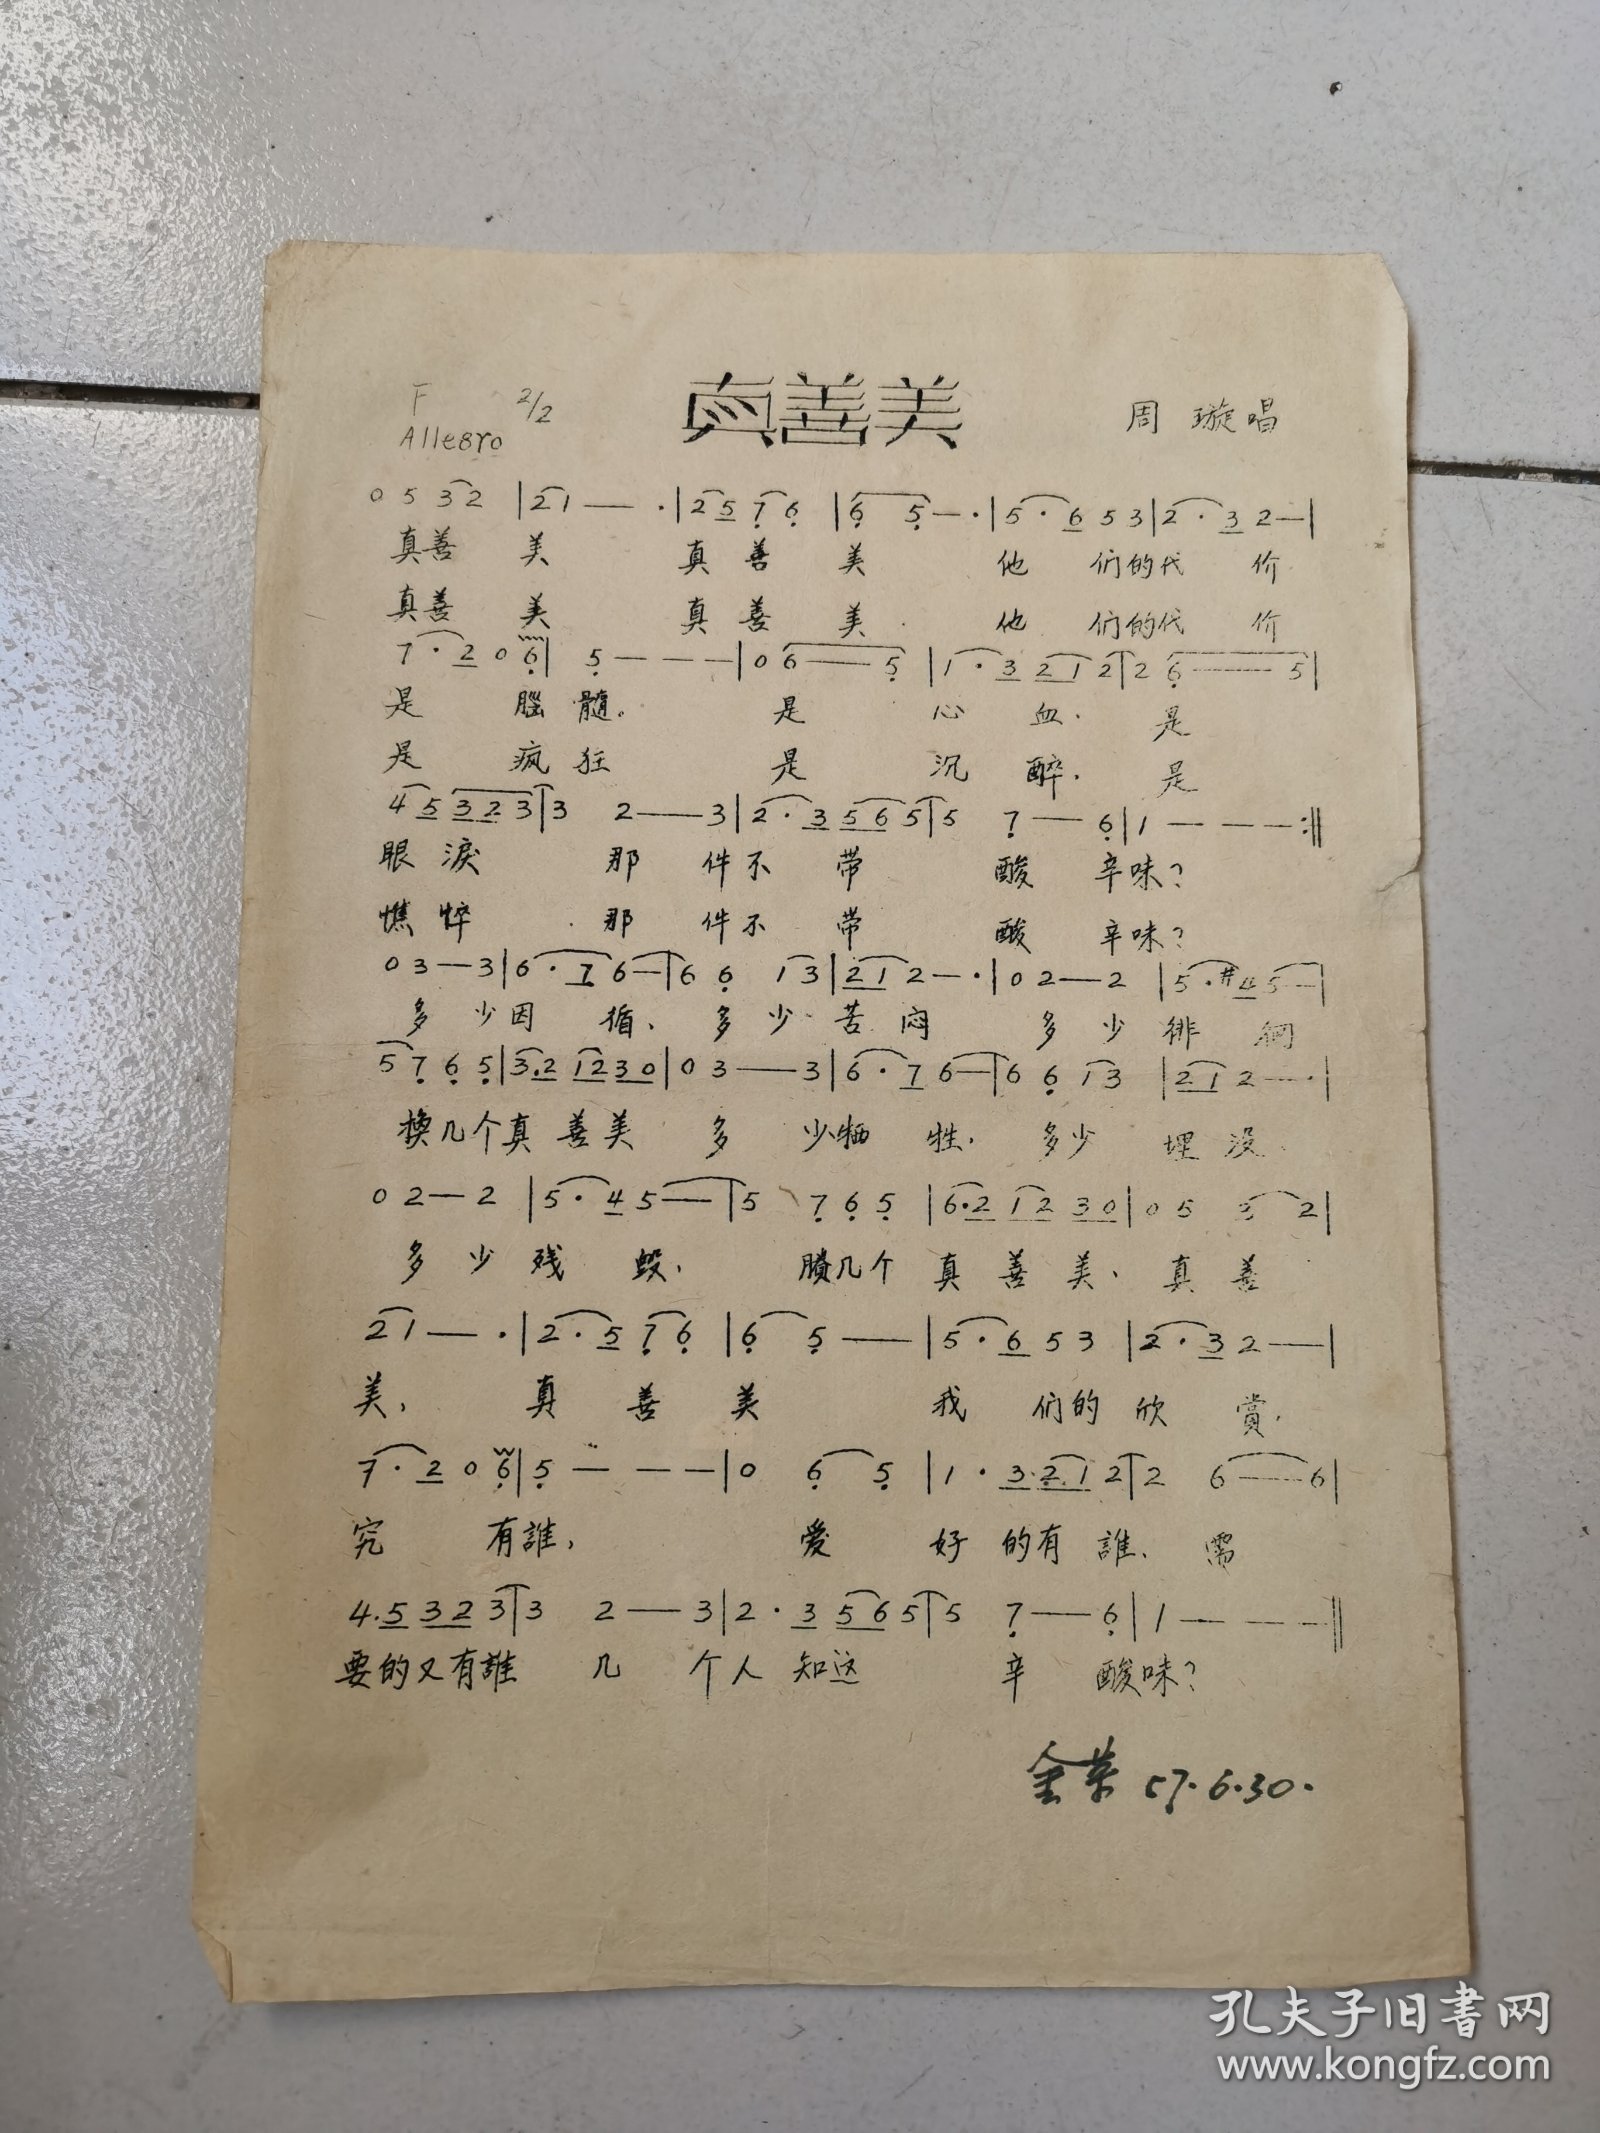 F 2/2 真善美 周璇唱
Allegro
0 5 3 2 | 2 1 — · | 2 5 7 6 | 6 5 — · | 5 · 6 5 3 | 2 · 3 2 — |
真善 美 真 善 美 他 们的代 价
真善 美 真 善 美 他 们的代 价
7 · 2 0 6 | 5 — — — | 0 6 — 5 | 1 · 3 2 1 2 | 2 6 — 5 |
是 腦 髓。 是 心 血. 是
是 疯 狂 是 沉 醉. 是
4 5 3 2 3 | 3 2 — 3 | 2 · 3 5 6 5 | 5 7 — 6 | 1 — — — :||
眼 淚 那 件不 带 酸 辛味?
憔 悴 那 件不 带 酸 辛味?
0 3 — 3 | 6 · 7 6 — | 6 6 1 3 | 2 1 2 — · | 0 2 — 2 | 5 · #4 5 — |
多 少因 循、 多 少 苦 闷 多 少 徘 徊
5 7 6 5 | 3.2 1 2 3 0 | 0 3 — 3 | 6 · 7 6 — | 6 6 1 3 | 2 1 2 — · |
换几个真 善美 多 少牺 牲. 多少 埋 没
0 2 — 2 | 5 · 4 5 — | 5 7 6 5 | 6·2 1 2 3 0 | 0 5 3 2 |
多 少 残 毁, 賸几个 真 善 美、 真 善
2 1 — · | 2 · 5 7 6 | 6 5 — | 5 · 6 5 3 | 2 · 3 2 — |
美, 真 善 美 我 们的 欣 赏,
7 · 2 0 6 | 5 — — — | 0 6 5 | 1 · 3·2·1 2 | 2 6 — 6 |
究 有誰, 爱 好 的有 誰、 需
4.5 3 2 3 | 3 2 — 3 | 2 · 3 5 6 5 | 5 7 — 6 | 1 — — — ||
要的又有誰 几 个人 知这 辛 酸味?
57.6.30.
孔夫子旧書网
www.kongfz.com